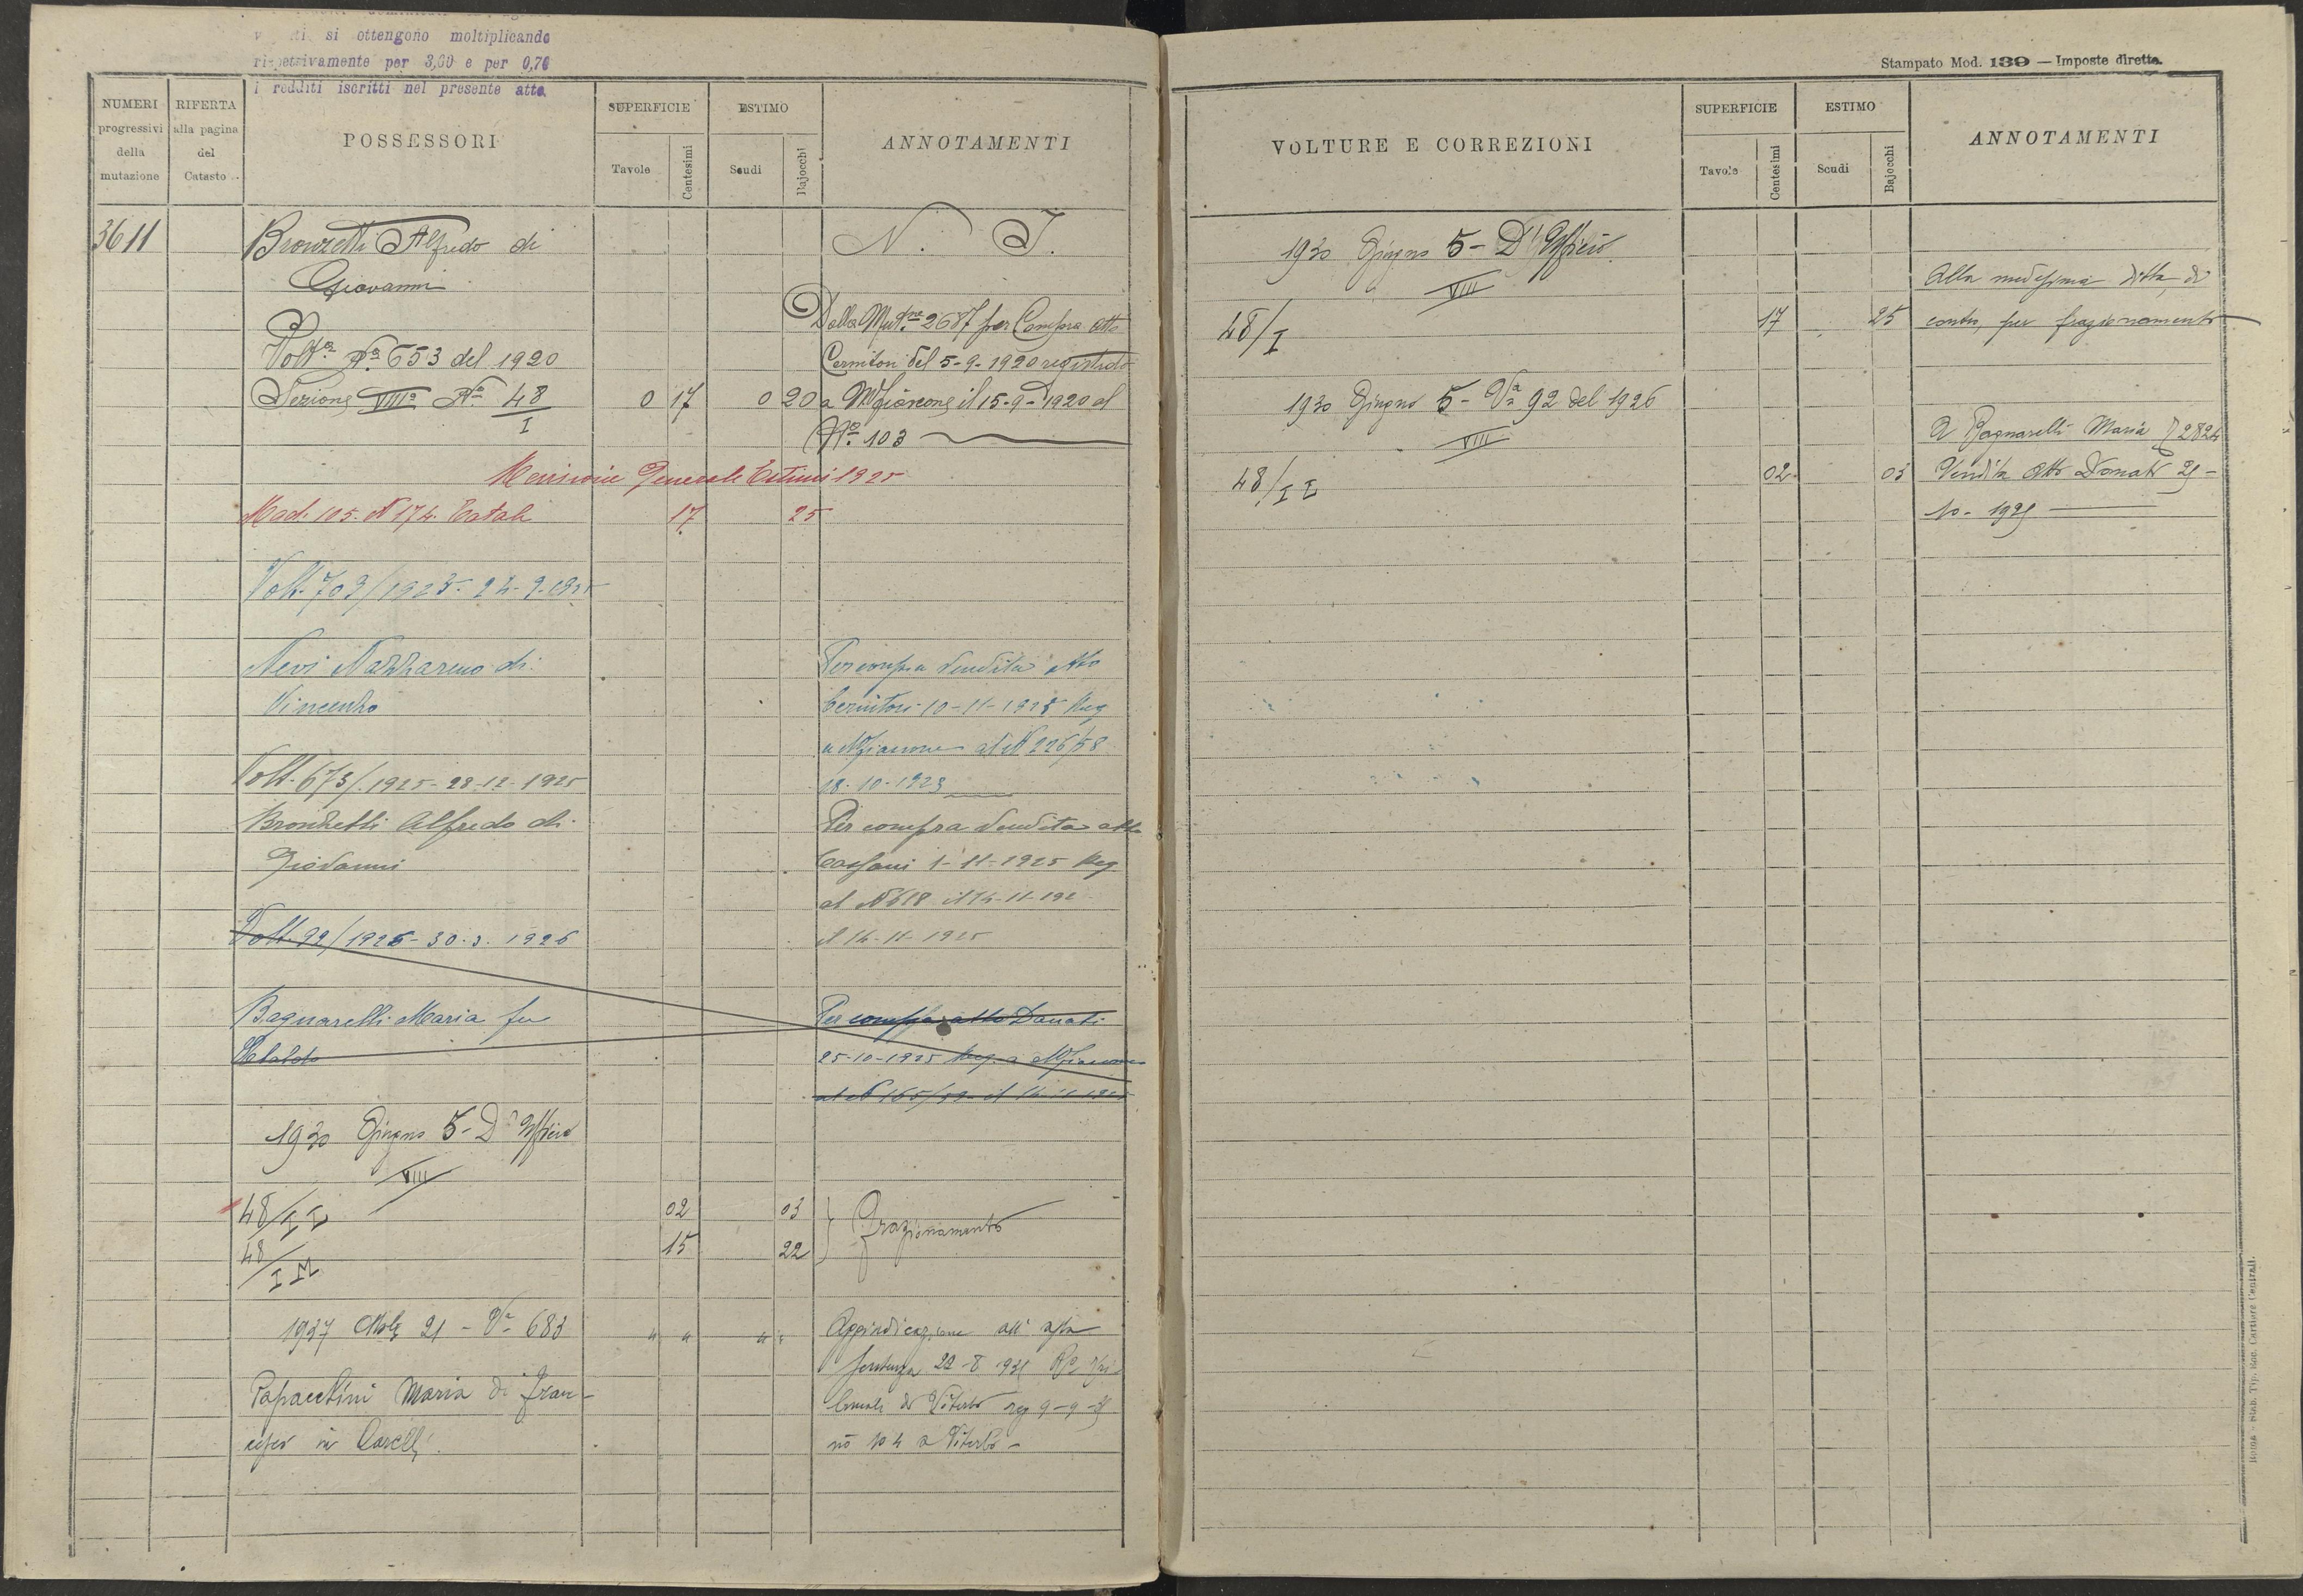 si ottengono moltiplicando
rispettivamente per 3,60 e per 0,70
i redditi iscritti nel presente atto.
NUMERI
progressivi
della
mutazione
RIFERTA
alla pagina
del
Catasto
POSSESSORI
SUPERFICIE
Tavole
Centesimi
ESTIMO
Scudi
Bajocchi
ANNOTAMENTI
3611
Bronzetti Alfredo di
Giovanni
N. I.
Volt.a N.o 653 del 1920
Sezione VIIIa No 48/I 0 17 0 20
Dalla Mut.ne 2687 per Compra Atto
Cernitori del 5-9-1920 registrato
a Mfiascone il 15-9-1920 al
No. 103
Revisione Generale Estimi 1925
Mod. 105. N 174. Totale 17 25
Volt. 709/1923-24-9-
Nevi Nazzareno di
Vincenzo
Per compra vendita atto
Cernitori 10-11-192 Reg
a Mfiascone al N 226/58
18-10-1923
Volt. 673/1925-28-12-1925
Bronzetti Alfredo di
Giovanni
Per compra vendita atto
1-11-1925 Reg
al N 618 il 14-11-192
il 14-11-1925
Volt. 92/1926-30.3.1926
Bagnarelli Maria fu
Per compra atto Donati
25-10-1925 Reg. a Mfiascone
al N 165/59 il 14-11-1925
1930 Giugno 5- D'Ufficio
VIII
48/I I 02 03
48/I M 15 22
Frazionamento
1937 21 - Va 683 " " " "
Papacchini Maria di Fran-
cesco in
Aggiudicazione all' asta
Sentenza 22-8 Tri
bunale di Viterbo reg 9-9-
no 104 a Viterbo -
Stampato Mod. 139 — Imposte dirette.
VOLTURE E CORREZIONI
SUPERFICIE
Tavole
Centesimi
ESTIMO
Scudi
Bajocchi
ANNOTAMENTI
1930 Giugno 5- D'Ufficio
VIII
48/I 17 25
Alla medesima ditta, di
contro, per frazionamento
1930 Giugno 5- Va 92 del 1926
VIII
48/I I 02 03
A Bagnarelli Maria 2824
Vendita Atto Donati 25-
10-1925
Roma - Stab. Tip. Soc. Cartiere Centrali.